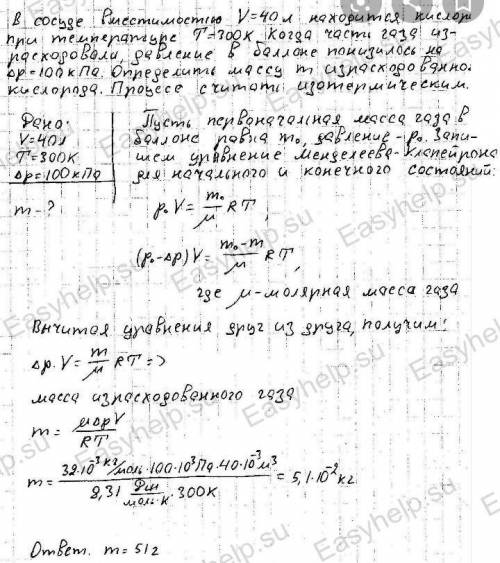 В сосуде вместимостью V=40л находится кислор
при температуре T=300К. Когда часть газа из-
расходовали, давление в баллоне понизилось на
Δp=100кПа. Определить массу m израсходованно-
кислорода. Процесс считать изотермическим.
Дано:
V=40л
T=300К
Δp=100кПа
m-?
Пусть первоначальная масса газа в
баллоне равна m₀, давление-p₀. Запи-
шем уравнение Менделеева-Клапейрона
для начального и конечного состояний:
p₀V = m₀/μ RT,
(p₀-Δp)V = (m₀-m)/μ RT,
где μ-молярная масса газа
Вычитая уравнения друг из друга, получим:
Δp·V = m/μ RT =>
масса израсходованного газа
m = μΔpV/RT
m = (32·10⁻³ кг/моль·100·10³Па·40·10⁻³м³)/(8,31 Дж/моль·К·300К) = 5,1·10⁻²кг
Ответ. m=51г
Easyhelp.su